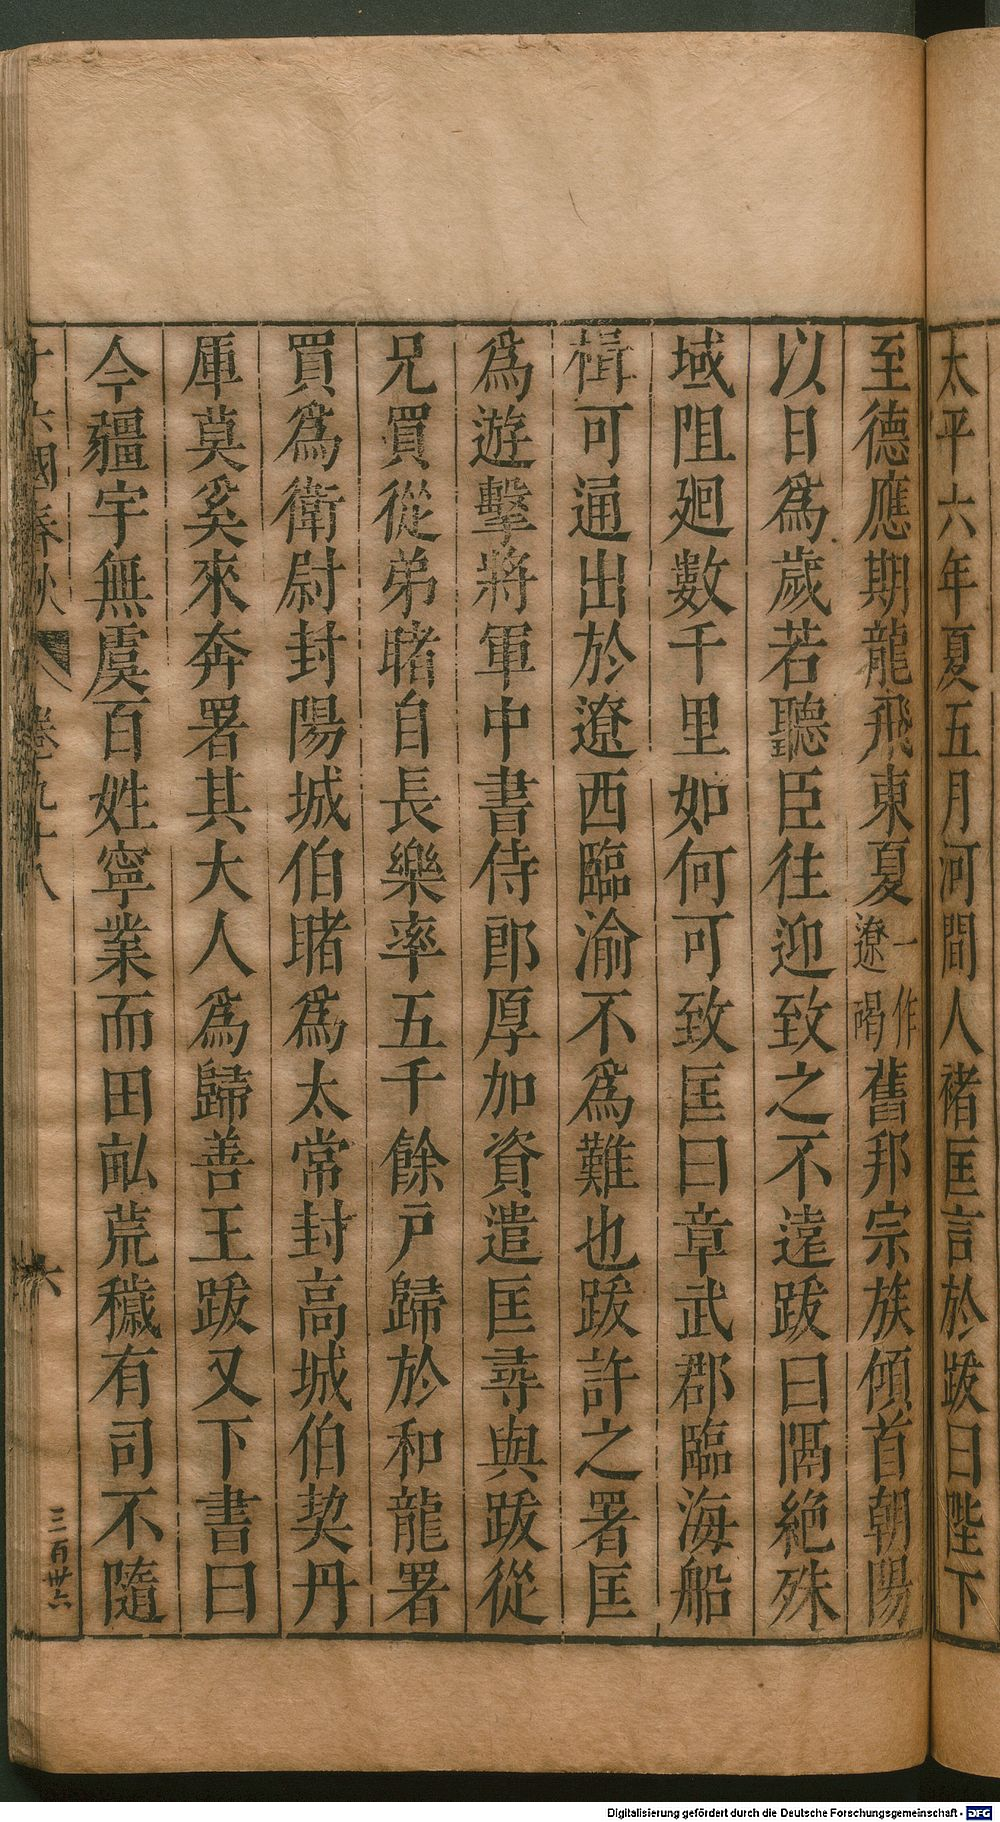 太平六年夏五月河間人褚匡言於跋曰陛下
至德應期龍飛東夏一作遼碣舊邦宗族傾首朝陽
以日為歲若聽臣往迎致之不遠跋曰隔絕殊
域阻廻數千里如何可致匡曰章武郡臨海船
楫可通出於遼西臨渝不為難也跋許之署匡
為遊擊將軍中書侍郎厚加資遣匡尋與跋從
兄買從弟睹自長樂率五千餘戶歸於和龍署
買為衛尉封陽城伯睹為太常封高城伯契丹
庫莫奚來奔署其大人為歸善王跋又下書曰
今疆宇無虞百姓寧業而田畝荒穢有司不隨
十六國春秋 卷九十八 六 三百卅六
Digitalisierung gefördert durch die Deutsche Forschungsgemeinschaft - DFG